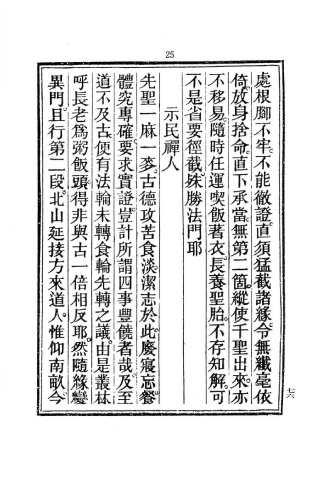 25
處根腳不牢。不能徹證。直須猛截諸緣。令無纖毫依
倚。放身捨命。直下承當。無第二箇。縱使千聖出來。亦
不移易。隨時任運。喫飯著衣。長養聖胎。不存知解。可
不是省要徑截殊勝法門耶
示民禪人
先聖一麻一麥。古德攻苦食淡。潔志於此。廢寢忘餐
體究專確。要求實證。豈計所謂四事豐饒者哉。及至
道不及古。便有法輪未轉食輪先轉之議。由是叢林
呼長老為粥飯頭。得非與古一倍相反耶。然隨緣變
異門。且行第二段。北山延接方來道人。惟仰南畝。今
十六